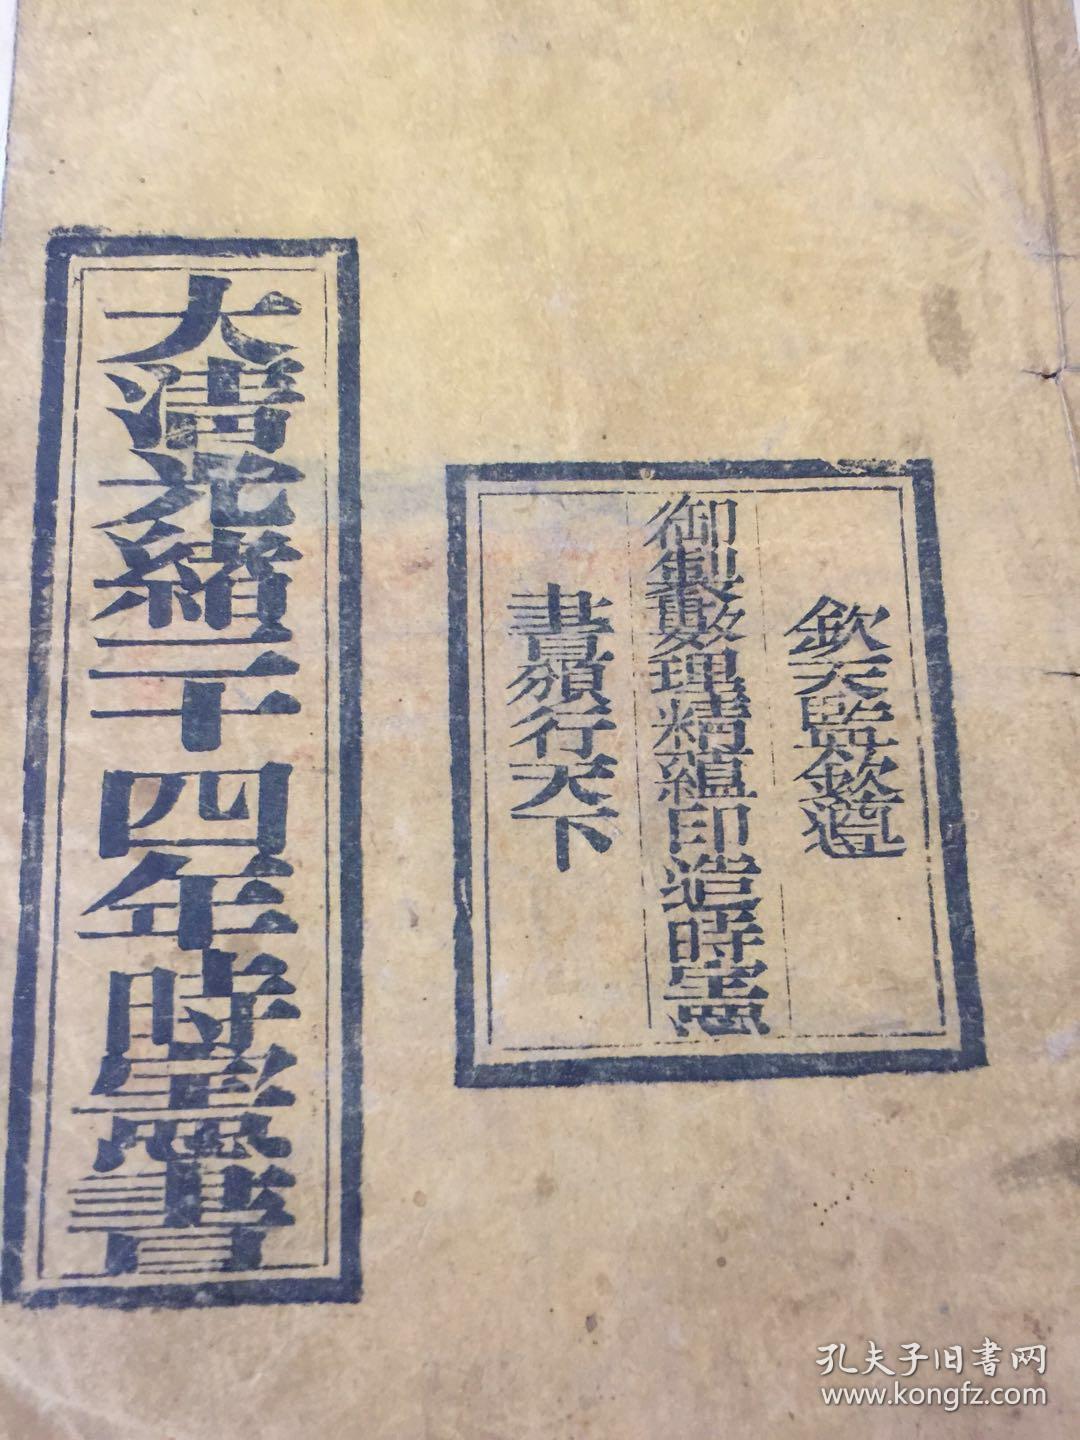 欽天監欽遵
御製數理精蘊印造時憲
書頒行天下
大清光緒二十四年時憲書
孔夫子旧書网
www.kongfz.com